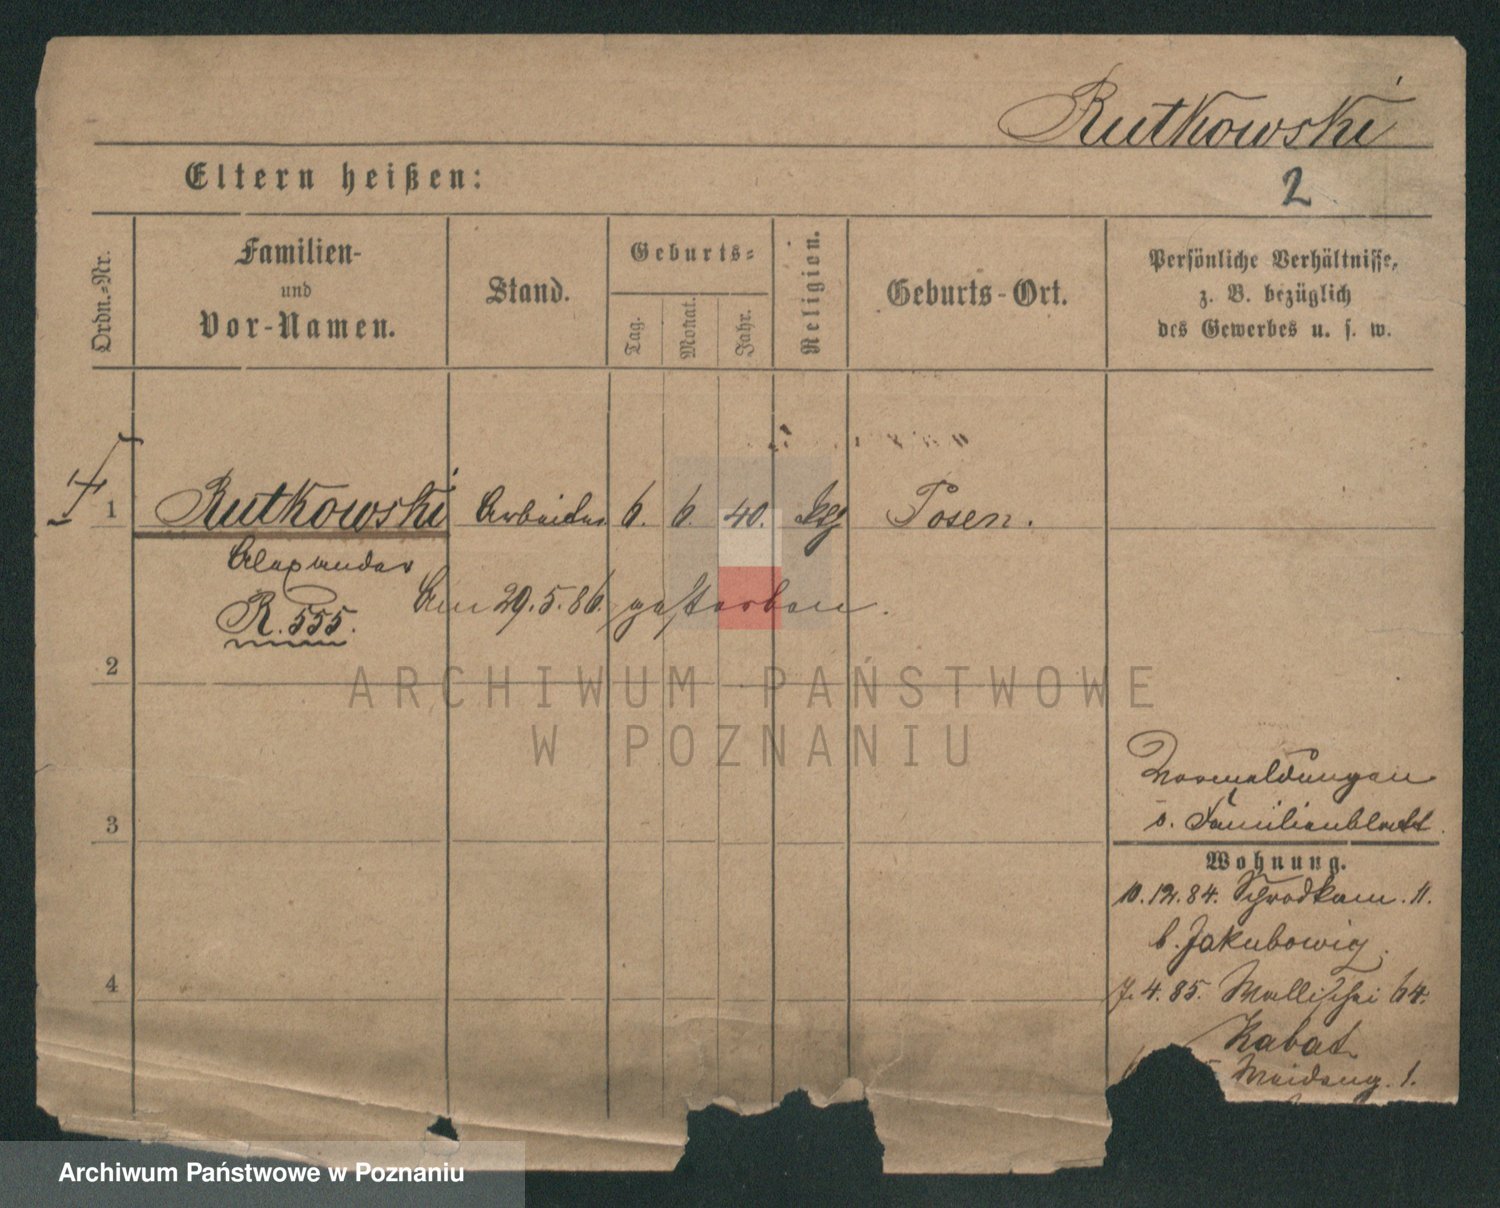 Rutkowski
Eltern heißen:
2
Ordn.-Nr.
Familien-
und
Vor-Namen.
Stand.
Geburts-
Tag.
Monat.
Jahr.
Religion.
Geburts-Ort.
Persönliche Verhältnisse,
z. B. bezüglich
des Gewerbes u. s. w.
1 Rutkowski Arbeiter 6. 6. 40. Posen.
Alexander
Am 29.5.86. gestorben.
R. 555.
2
ARCHIWUM PAŃSTWOWE
W POZNANIU
3
4
Vormeldungen
s. Familienblatt.
Wohnung.
10.12.84. 11.
b. Jakubowicz.
7.4.85. Wallischei 64.
Kabat
1.
Archiwum Państwowe w Poznaniu